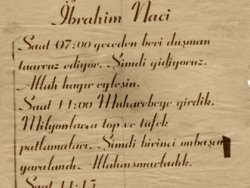 İbrahim Naci
Saat 07:00 geceden beri düşman
taarruz ediyor. Şimdi gidiyoruz.
Allah hayır eylesin.
Saat 11:00 Muharebeye girdik.
Milyonlarca top ve tüfek
patlamaları. Şimdi birinci onbaşım
yaralandı. Allahaısmarladık.
Saat 11:15